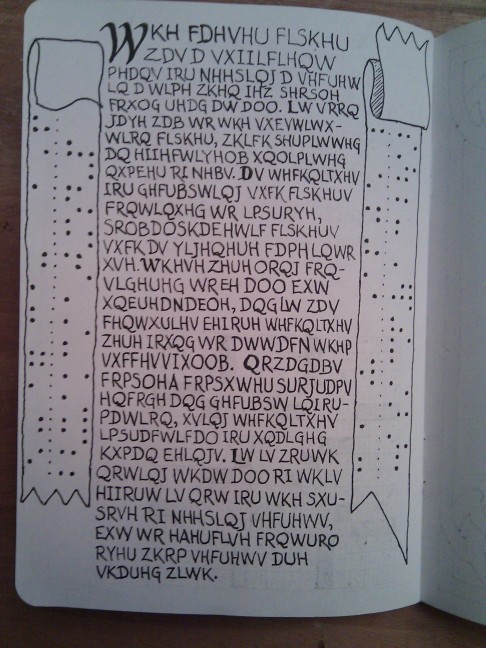 WKH FDHVHU FLSKHU
ZDV D VXIILFLHQW
PHDQV IRU NHHSLQJ D VHFUHW
LQ D WLPH ZKHQ IHZ SHRSOH
FRXOG UHDG DW DOO. LW VRRQ
JDYH ZDB WR WKH VXEVWLWX-
WLRQ FLSKHU, ZKLFK SHUPLWWHG
DQ HIIHFWLYHOB XQOLPLWHG
QXPEHU RI NHBV. DV WHFKQLTXHV
IRU GHFUBSWLQJ VXFK FLSKHUV
FRQWLQXHG WR LPSURYH,
SROBDOSKDEHWLF FLSKHUV
VXFK DV YLJHQHUH FDPH LQWR
XVH. WKHVH ZHUH ORQJ FRQ-
VLGHUHG WR EH DOO EXW
XQEUHDNDEOH, DQG LW ZDV
FHQWXULHV EHIRUH WHFKQLTXHV
ZHUH IRXQG WR DWWDFN WKHP
VXFFHVVIXOOB. QRZDGDBV
FRPSOHA FRPSXWHU SURJUDPV
HQFRGH DQG GHFUBSW LQIRU-
PDWLRQ, XVLQJ WHFKQLTXHV
LPSUDFWLFDO IRU XQDLGHG
KXPDQ EHLQJV. LW LV ZRUWK
QRWLQJ WKDW DOO RI WKLV
HIIRUW LV QRW IRU WKH SXU-
SRVH RI NHHSLQJ VHFUHWV,
EXW WR HAHUFLVH FRQWURO
RYHU ZKRP VHFUHWV DUH
VKDUHG ZLWK.